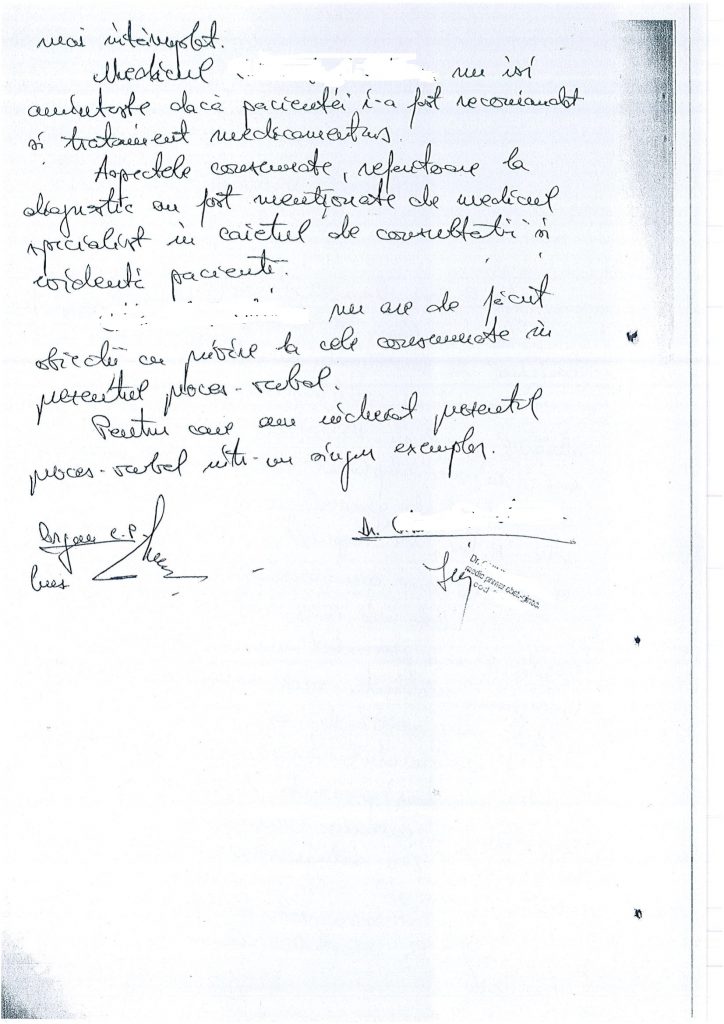 mai întâmplat.
Medicul nu îsi
aminteste dacă pacientei i-a fost recomandat
si tratament medicamentos.
Aspectele consemnate, referitoare la
diagnostic au fost mentionate de medicul
specialist în caietul de consultatii si
evidentă paciente.
nu are de făcut
obiectii cu privire la cele consemnate în
prezentul proces-verbal.
Pentru care am încheiat prezentul
proces-verbal într-un singur exemplar.
Organ C.P.
Dr. C
Dr.
medic primar obst-ginec
cod